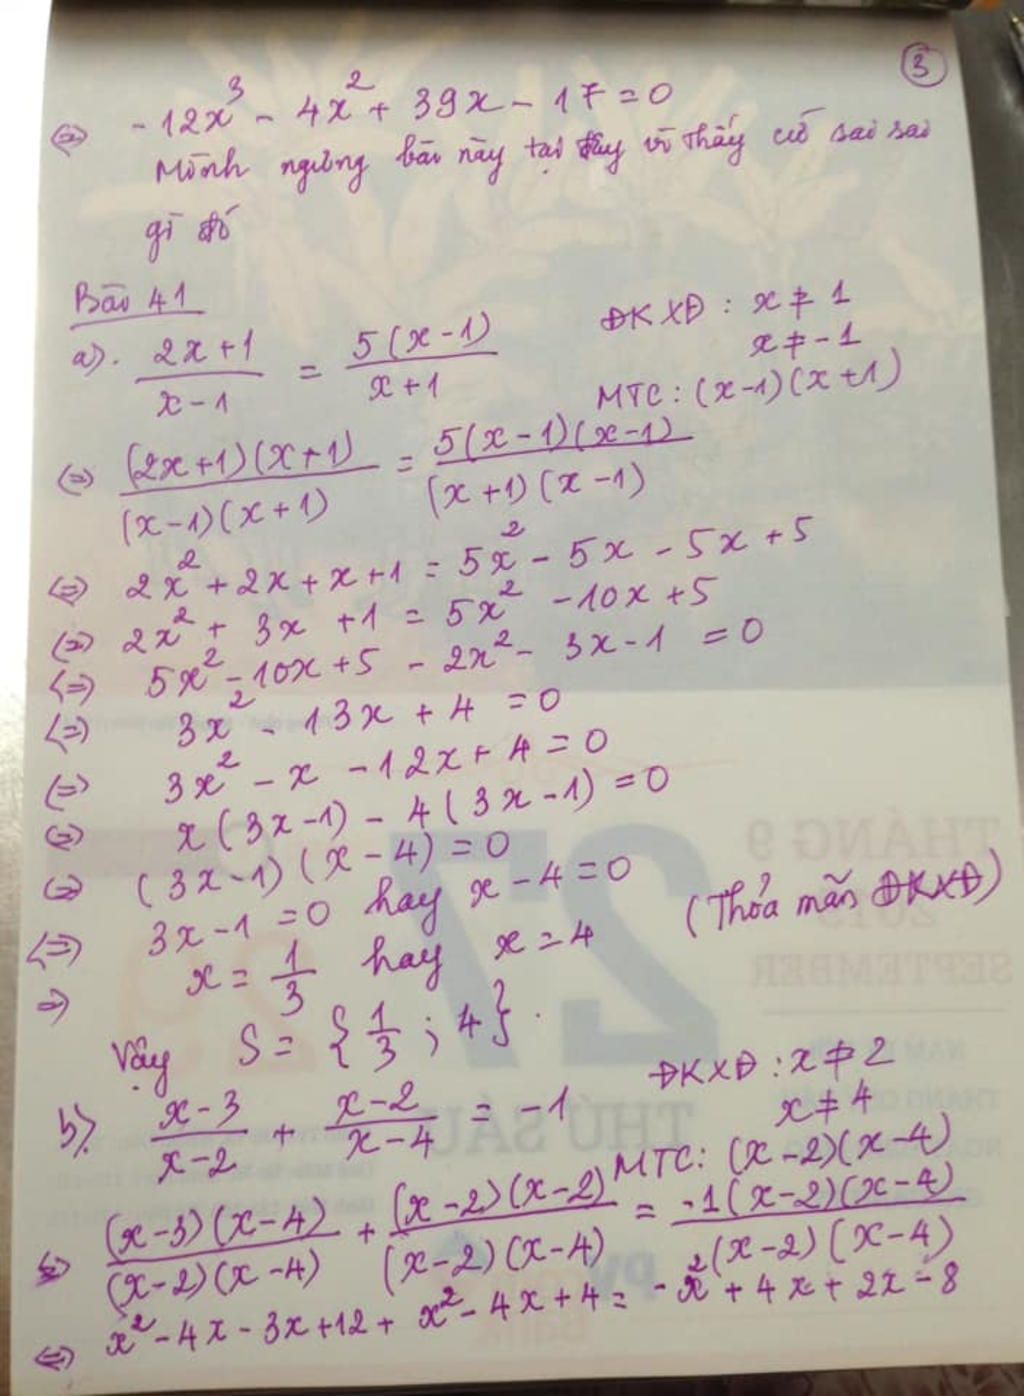 ③
⇔ -12x³ - 4x² + 39x - 17 = 0
Mình ngừng bài này tại đây vì thấy cứ sai sai
gì đó
Bài 41
a). (2x+1)/(x-1) = 5(x-1)/(x+1) ĐKXĐ: x ≠ 1
x ≠ -1
MTC: (x-1)(x+1)
⇔ (2x+1)(x+1)/(x-1)(x+1) = 5(x-1)(x-1)/(x+1)(x-1)
⇔ 2x² + 2x + x + 1 = 5x² - 5x - 5x + 5
⇔ 2x² + 3x + 1 = 5x² - 10x + 5
⇔ 5x² - 10x + 5 - 2x² - 3x - 1 = 0
⇔ 3x² - 13x + 4 = 0
⇔ 3x² - x - 12x + 4 = 0
⇔ x(3x-1) - 4(3x-1) = 0
⇔ (3x-1)(x-4) = 0
⇔ 3x-1 = 0 hay x-4 = 0
⇒ x = 1/3 hay x = 4 (Thỏa mãn ĐKXĐ)
Vậy S = {1/3 ; 4}.
b). (x-3)/(x-2) + (x-2)/(x-4) = -1 ĐKXĐ: x ≠ 2
x ≠ 4
MTC: (x-2)(x-4)
⇔ (x-3)(x-4)/(x-2)(x-4) + (x-2)(x-2)/(x-2)(x-4) = -1(x-2)(x-4)/(x-2)(x-4)
⇔ x² - 4x - 3x + 12 + x² - 4x + 4 = -x² + 4x + 2x - 8
THÁNG 9
27
SEPTEMBER
THỨ SÁU